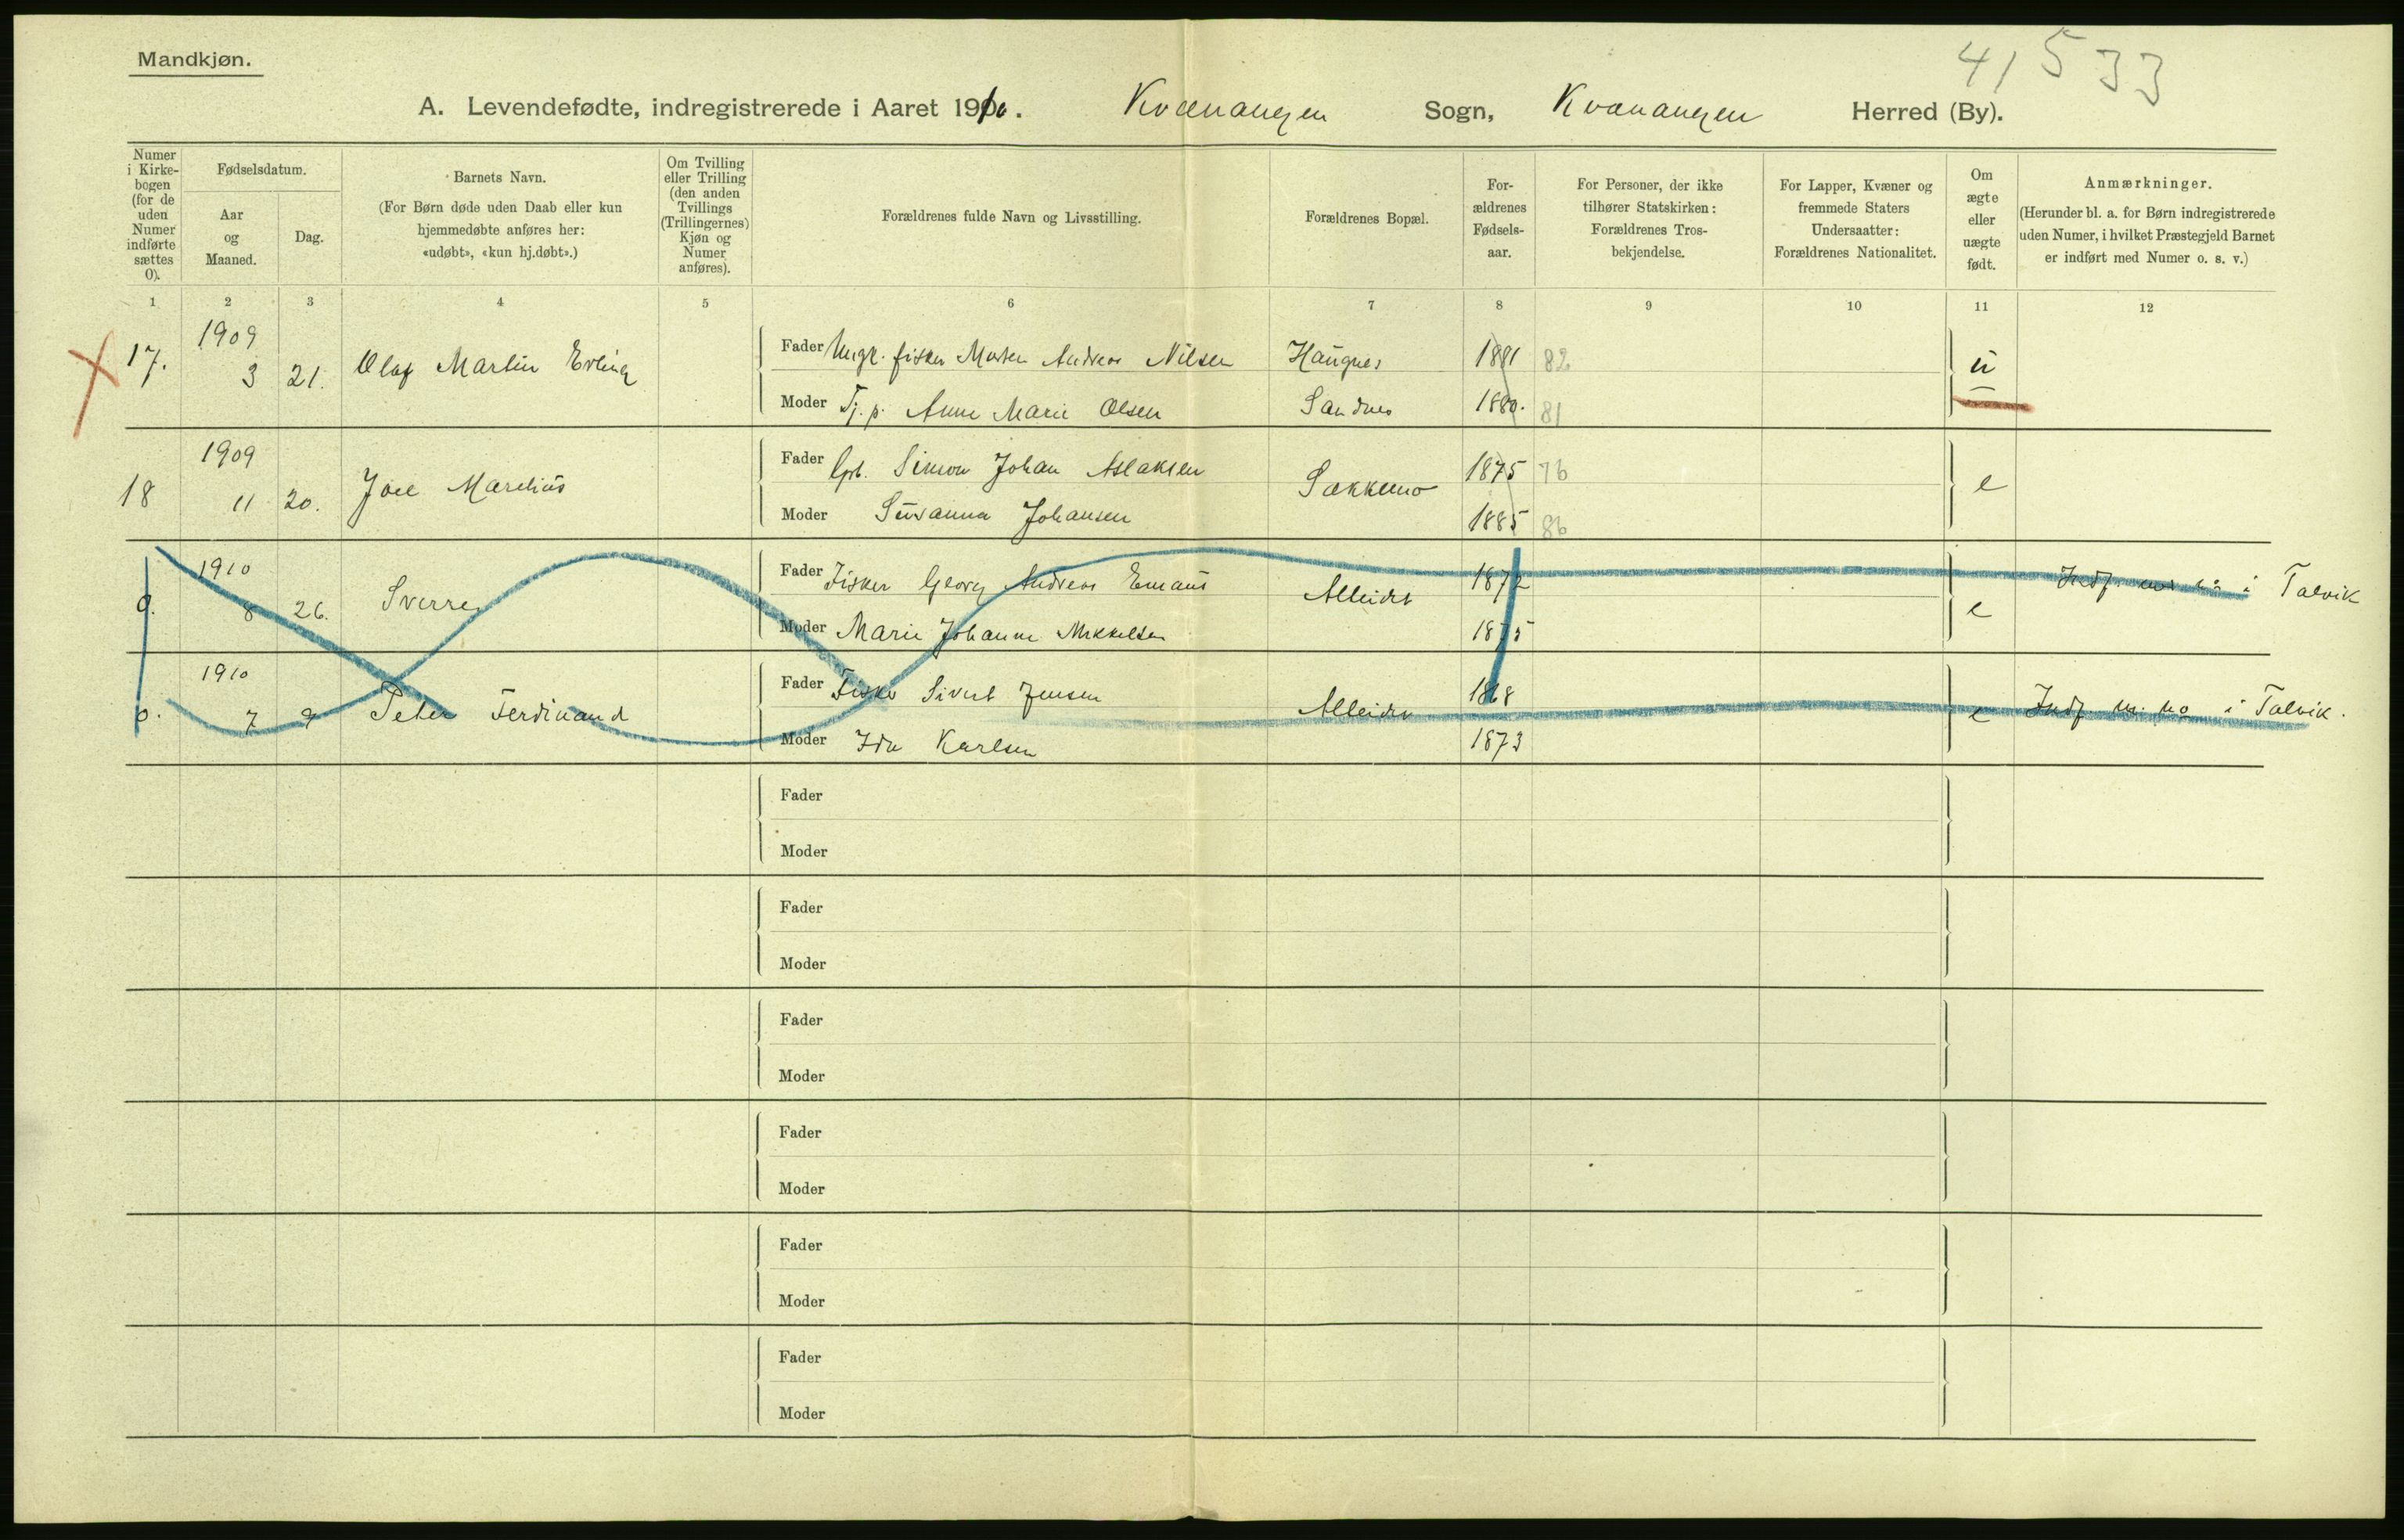 41533
Mandkjøn.
A. Levendefødte, indregistrerede i Aaret 1910. Kvænangen Sogn, Kvænangen Herred (By).
Numer i Kirkebogen (for de uden Numer indførte sættes 0).
Fødselsdatum.
Aar og Maaned.
Dag.
Barnets Navn.
(For Børn døde uden Daab eller kun
hjemmedøbte anføres her:
«udøbt», «kun hj.døbt».)
Om Tvilling
eller Trilling
(den anden
Tvillings
(Trillingernes)
Kjøn og
Numer
anføres).
Forældrenes fulde Navn og Livsstilling.
Forældrenes Bopæl.
For-
ældrenes
Fødsels-
aar.
For Personer, der ikke
tilhører Statskirken:
Forældrenes Tros-
bekjendelse.
For Lapper, Kvæner og
fremmede Staters
Undersaatter:
Forældrenes Nationalitet.
Om
ægte
eller
uægte
født.
Anmærkninger.
(Herunder bl. a. for Børn indregistrerede
uden Numer, i hvilket Præstegjeld Barnet
er indført med Numer o. s. v.)
1 2 3 4 5 6 7 8 9 10 11 12
17. 1909 3 21. Olaf Martin Erling Fader Ungk. fisker Morten Andreas Nilsen Haugnes 1881 82 u
Moder Tj. p. Anne Marie Olsen Sandnes 1880. 81
18 1909 11 20. Joel Marelius Fader Gbr. Simon Johan Aslaksen Sækkemo 1875 76 e
Moder Susanna Johansen 1885 86
0. 1910 8 26. Sverre Fader Fisker Georg Andreas Emaus Alteidet 1872 e Indf. i Talvik
Moder Marie Johanne Mikkelsen 1875
0. 1910 7 9 Peter Ferdinand Fader Fisker Sivert Jensen Alteidet 1868 e Indf. m. no i Talvik.
Moder Ida Karlsen 1873
Fader
Moder
Fader
Moder
Fader
Moder
Fader
Moder
Fader
Moder
Fader
Moder